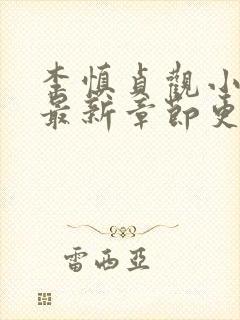 李慎貞觀小
最新章節更
雷西亞